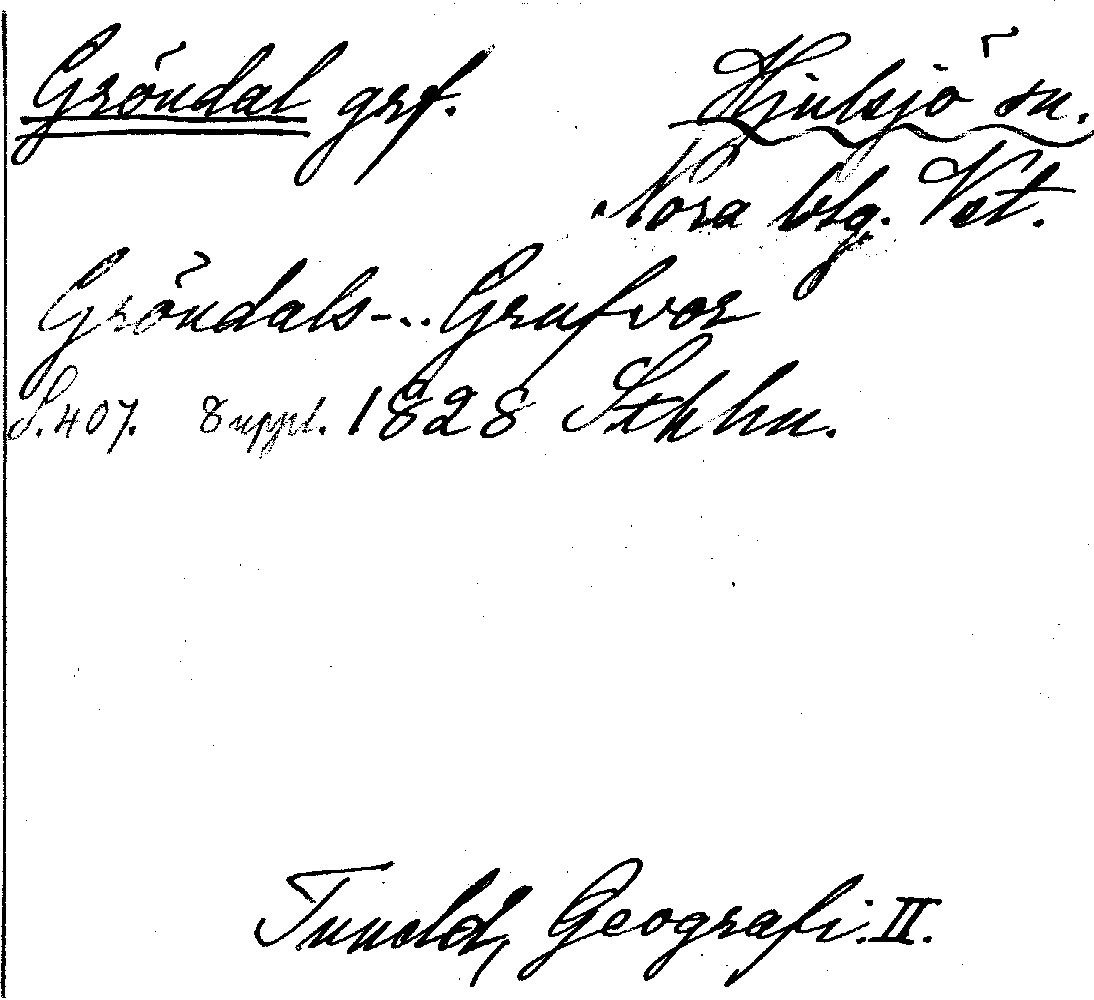 Gröndal grf. Hjulsjö sn.
Nora btg. Vst.
Gröndals-... Grufvor
S. 407. 8 uppl. 1828 Sthlm.
Tuneld, Geografi. II.